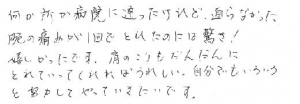 何か所か病院に通ったけれど、直らなかった
腕の痛みが1回でとれたのには驚き!
嬉しかったです。肩のこりもだんだんに
とれていってくれればうれしい。自分でもいろいろ
と努力してやっていきたいです。